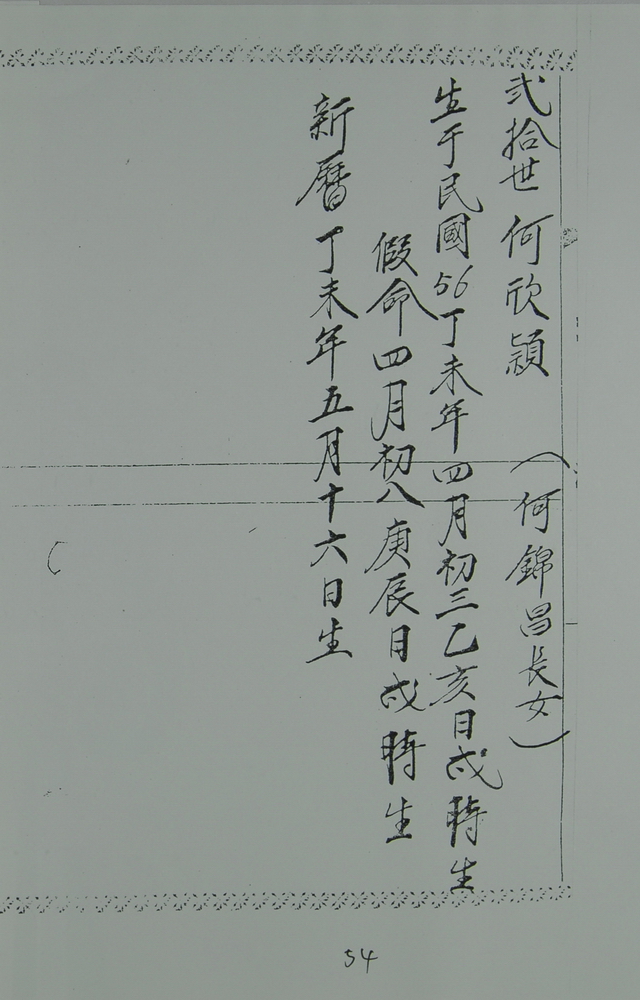 弍拾世 何欣穎 (何錦昌長女)
生于民國56丁未年四月初三乙亥日戌時生
假命四月初八庚辰日戌時生
新曆丁未年五月十六日生
54